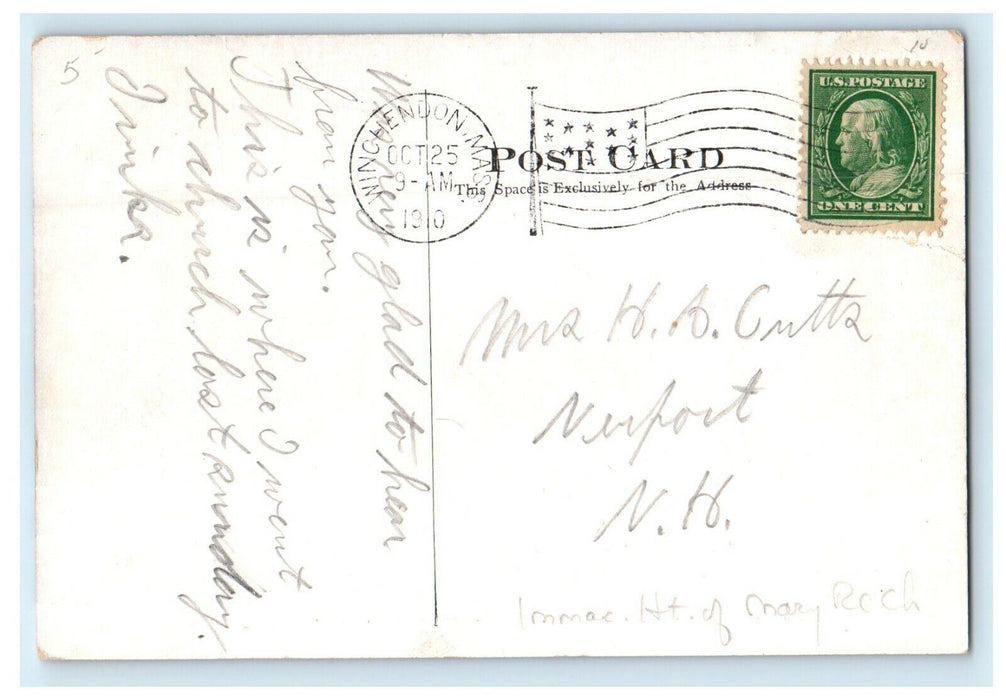 5
10
U.S. POSTAGE
ONE CENT
WINCHENDON, MASS.
OCT 25
9-AM
1910
POST CARD
This Space is Exclusively for the Address
very glad to hear
from you.
This is where I went
to church last sunday.
Mrs H. B. Cutts
Newport
N. H.
Immac. Ht. of Mary RC ch